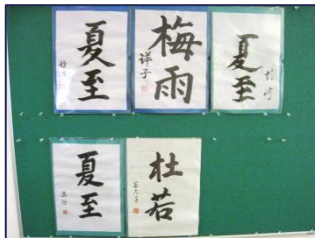 夏至
梅雨
祥子
夏至
夏至
杜若